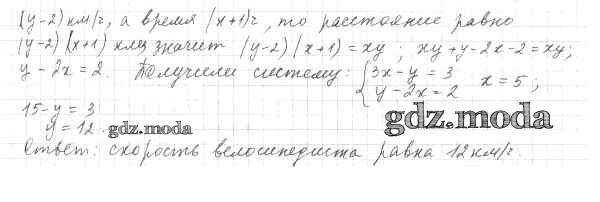 (y-2) км/г, а время (x+1)г, то расстояние равно
(y-2)(x+1) км, значит (y-2)(x+1) = xy ; xy+y-2x-2=xy;
y-2x=2. Получили систему: {3x-y=3 x=5;
y-2x=2
15-y=3
y=12 gdz.moda
gdz.moda
Ответ: скорость велосипедиста равна 12 км/г.